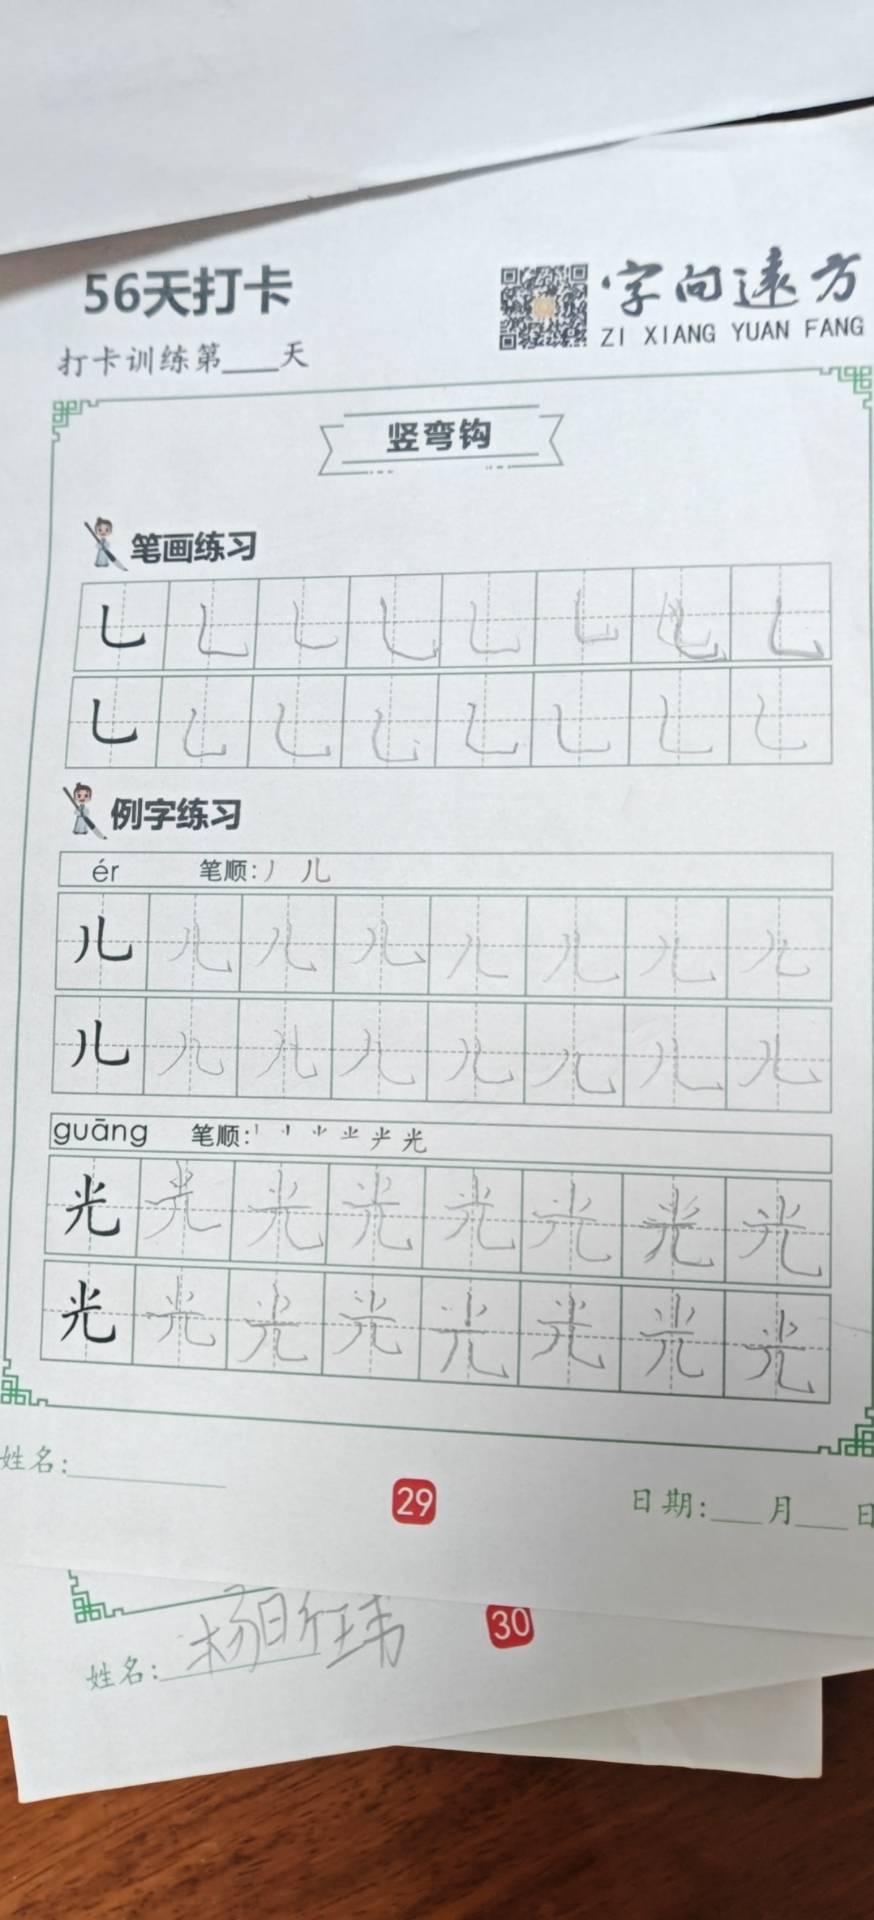 56天打卡
字向远方
ZI XIANG YUAN FANG
打卡训练第____天
竖弯钩
笔画练习
乚 乚 乚 乚 乚 乚 乚 乚
乚 乚 乚 乚 乚 乚 乚 乚
例字练习
ér 笔顺:丿 儿
儿 儿 儿 儿 儿 儿 儿 儿
儿 儿 儿 儿 儿 儿 儿 儿
guāng 笔顺: 光
光 光 光 光 光 光 光 光
光 光 光 光 光 光 光 光
姓名:
29
日期:___月___日
30
姓名:杨昕玮